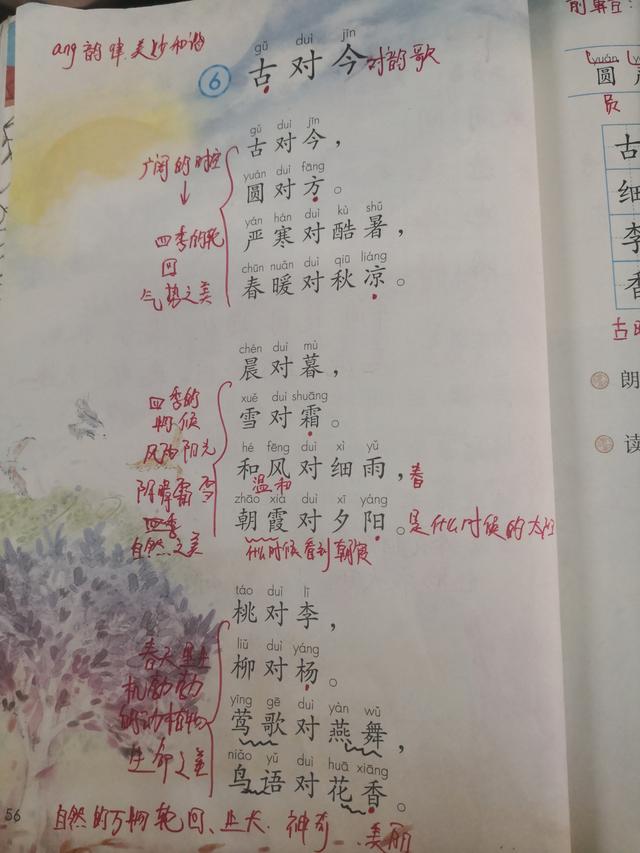 ang韵律美妙和谐
gǔ duì jīn
6 古对今 对韵歌
gǔ duì jīn
古对今，
yuán duì fāng
圆对方。
yán hán duì kù shǔ
严寒对酷暑，
chūn nuǎn duì qiū liáng
春暖对秋凉。
广阔的时空
↓
四季的轮
回
气势之美
chén duì mù
晨对暮，
xuě duì shuāng
雪对霜。
hé fēng duì xì yǔ
和风对细雨，春
温和
zhāo xiá duì xī yáng
朝霞对夕阳。是什么时候的太阳
什么时候看到朝霞
四季的
物候
风雨阳光
阴晴霜雪
四季
自然之美
táo duì lǐ
桃对李，
liǔ duì yáng
柳对杨。
yīng gē duì yàn wǔ
莺歌对燕舞，
niǎo yǔ duì huā xiāng
鸟语对花香。
春天里
的动植物
生命之美
自然的万物轮回、生长、神奇、美丽
56
yuán
圆
员
古
细
李
香
古
朗
读